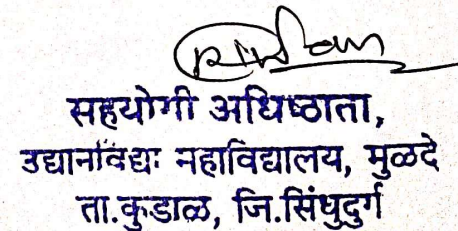 सहयोगी अधिष्ठाता,
उद्यानविद्या महाविद्यालय, मुळदे
ता.कुडाळ, जि.सिंधुदुर्ग